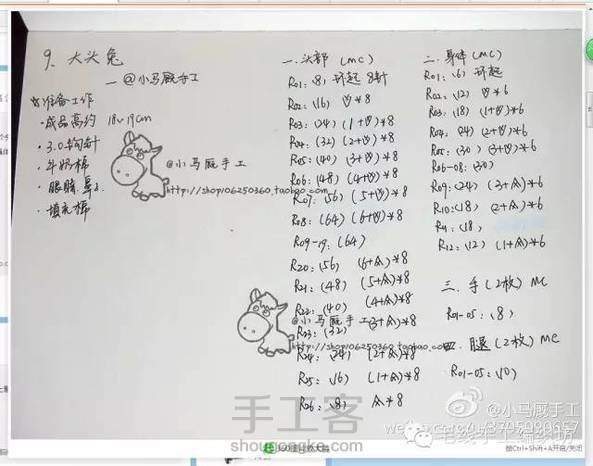 9. 大头兔
— @小马厩手工
准备工作
·成品高约 18-19cm
·3.0钩针
·牛奶棉
·眼睛 鼻子
·填充棉
@小马厩手工
http://shop106250360.taobao.com
一.头部 (MC)
R01: (8) 环起 8针
R02: (16) V*8
R03: (24) (1+V)*8
R04: (32) (2+V)*8
R05: (40) (3+V)*8
R06: (48) (4+V)*8
R07: (56) (5+V)*8
R08: (64) (6+V)*8
R09-19: (64)
R20: (56) (6+A)*8
R21: (48) (5+A)*8
R22: (40) (4+A)*8
R23: (32) (3+A)*8
R24: (24) (2+A)*8
R25: (16) (1+A)*8
R26: (8) A*8
@小马厩手工
http://shop106250360.taobao.com
二.身体 (MC)
R01: (6) 环起
R02: (12) V*6
R03: (18) (1+V)*6
R04: (24) (2+V)*6
R05: (30) (3+V)*6
R06-08: (30)
R09: (24) (3+A)*6
R10: (18) (2+A)*6
R11: (18)
R12: (12) (1+A)*6
三.手 (2枚) MC
R01-05: (8)
四.腿 (2枚) MC
R01-05: (10)
手工客
@小马厩手工
毛线手工编织坊
按Ctrl+Shift+A开启/关闭